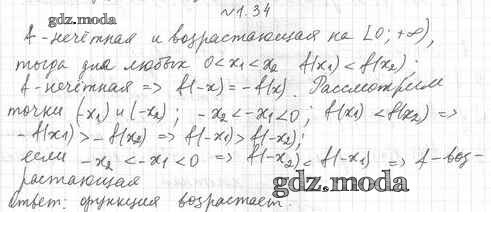 №1.34
gdz.moda
f-нечётная и возрастающая на [0; +∞),
тогда для любых 0<x₁<x₂ f(x₁)<f(x₂).
f-нечётная => f(-x)=-f(x). Рассмотрим
точки (-x₁) и (-x₂); -x₂<-x₁<0; f(x₁)<f(x₂) =>
-f(x₁)>-f(x₂) => f(-x₁)>f(-x₂);
если -x₂<-x₁<0 => f(-x₂)<f(-x₁) => f-воз-
растающая
gdz.moda
ответ: функция возрастает.